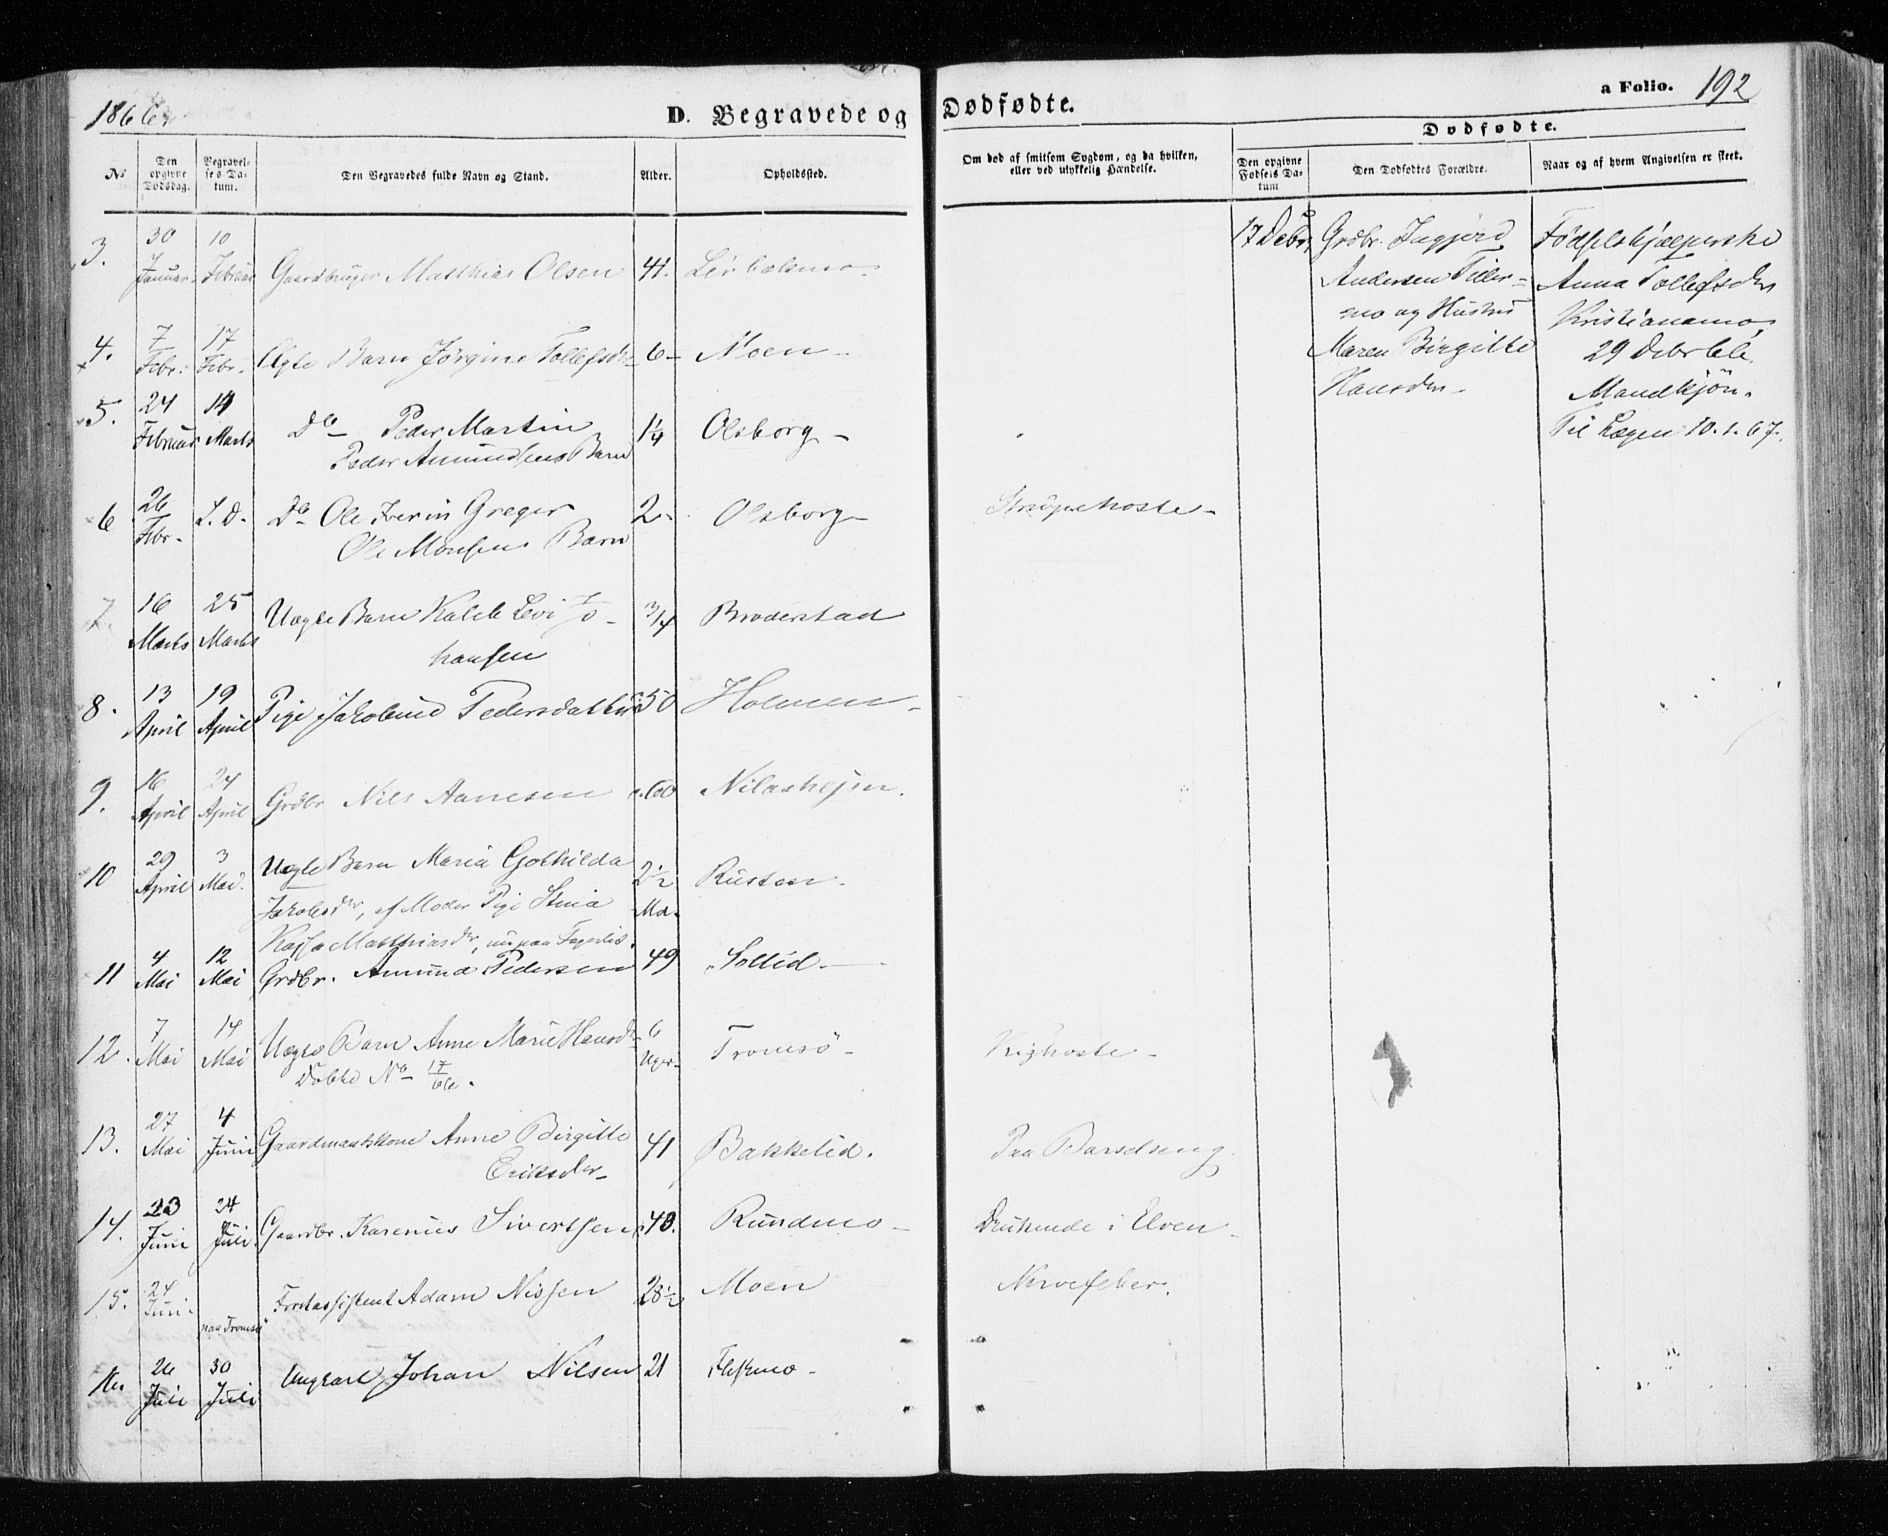 1866.
D. Begravede og Dødfødte.
a Folio. 192
Dødfødte.
No
Den opgivne Dødsdag.
Begravelses Datum.
Den Begravedes fulde Navn og Stand.
Alder.
Opholdssted.
Om død af smitsom Sygdom, og da hvilken,
eller ved ulykkelig Hændelse.
Den opgivne Fødsels Datum
Den Dødfødtes Forældre.
Naar og af hvem Angivelsen er skeet.
3. 30 Januar 10 Februar Gaardbruger Matthias Olsen 41. Lerbaksmo
4. 7 Febr. 17 Febr. Ægte Barn Jørgine Tollefsdr 6 Moen
5. 24 Februar 14 Marts Do Peder Martin
Peder Amundsens Barn 1/4 Olsborg
6 26 Febr. S. D. Do Ole Iverin Greger
Ole Monsens Barn 2 Olsborg Strubehoste
7. 16 Marts 25 Marts Uægte Barn Kaleb Levi Jo-
hansen 3/4 Broderstad
8. 13 April 19 April Pige Jakobine Pedersdatter 50 Holmen
9. 16 April 24 April Grdbr Nils Aanesen 60
10 29 April 3 Mai. Uægte Barn Maria Gothilda
Jakobsdr, af Moder Pige Stina
Kajsa Matthiasdr, nu paa Fagerlid. 2 1/2 Md. Rusten
11 4 Mai 12 Mai Grdbr. Amund Pedersen 49 Sollid
12. 7 Mai 14 Mai Uægte Barn Anne Marie Hansdr
Døbte No 17/66. 6 Uger Tromsö Kighoste
13. 27 Mai 4 Juni Gaardmandskone Anne Birgitte
Eriksdr 41 Bakkelid. Paa Barselseng
14. 23 Juni 24 Juli Gaardbr. Karenius Sivertsen 40. Rundmo Druknede i Elven
15. 24 Juni paa Tromsö Forstassistent Adam Nissen 28 1/2 Moen Nervefeber.
16. 26 Juli 30 Juli Ungkarl Johan Nilsen 21 Fleskmo
17 Debr. Grdbr. Ingjerd
Andersen Tiller-
mo og Hustru
Maren Birgitte
Hansdr
Fødselshjælperske
Anna Tollefsdr
Kristianamo,
29 Debr 66.
Mandkjøn.
Til Lægen 10.1.67.